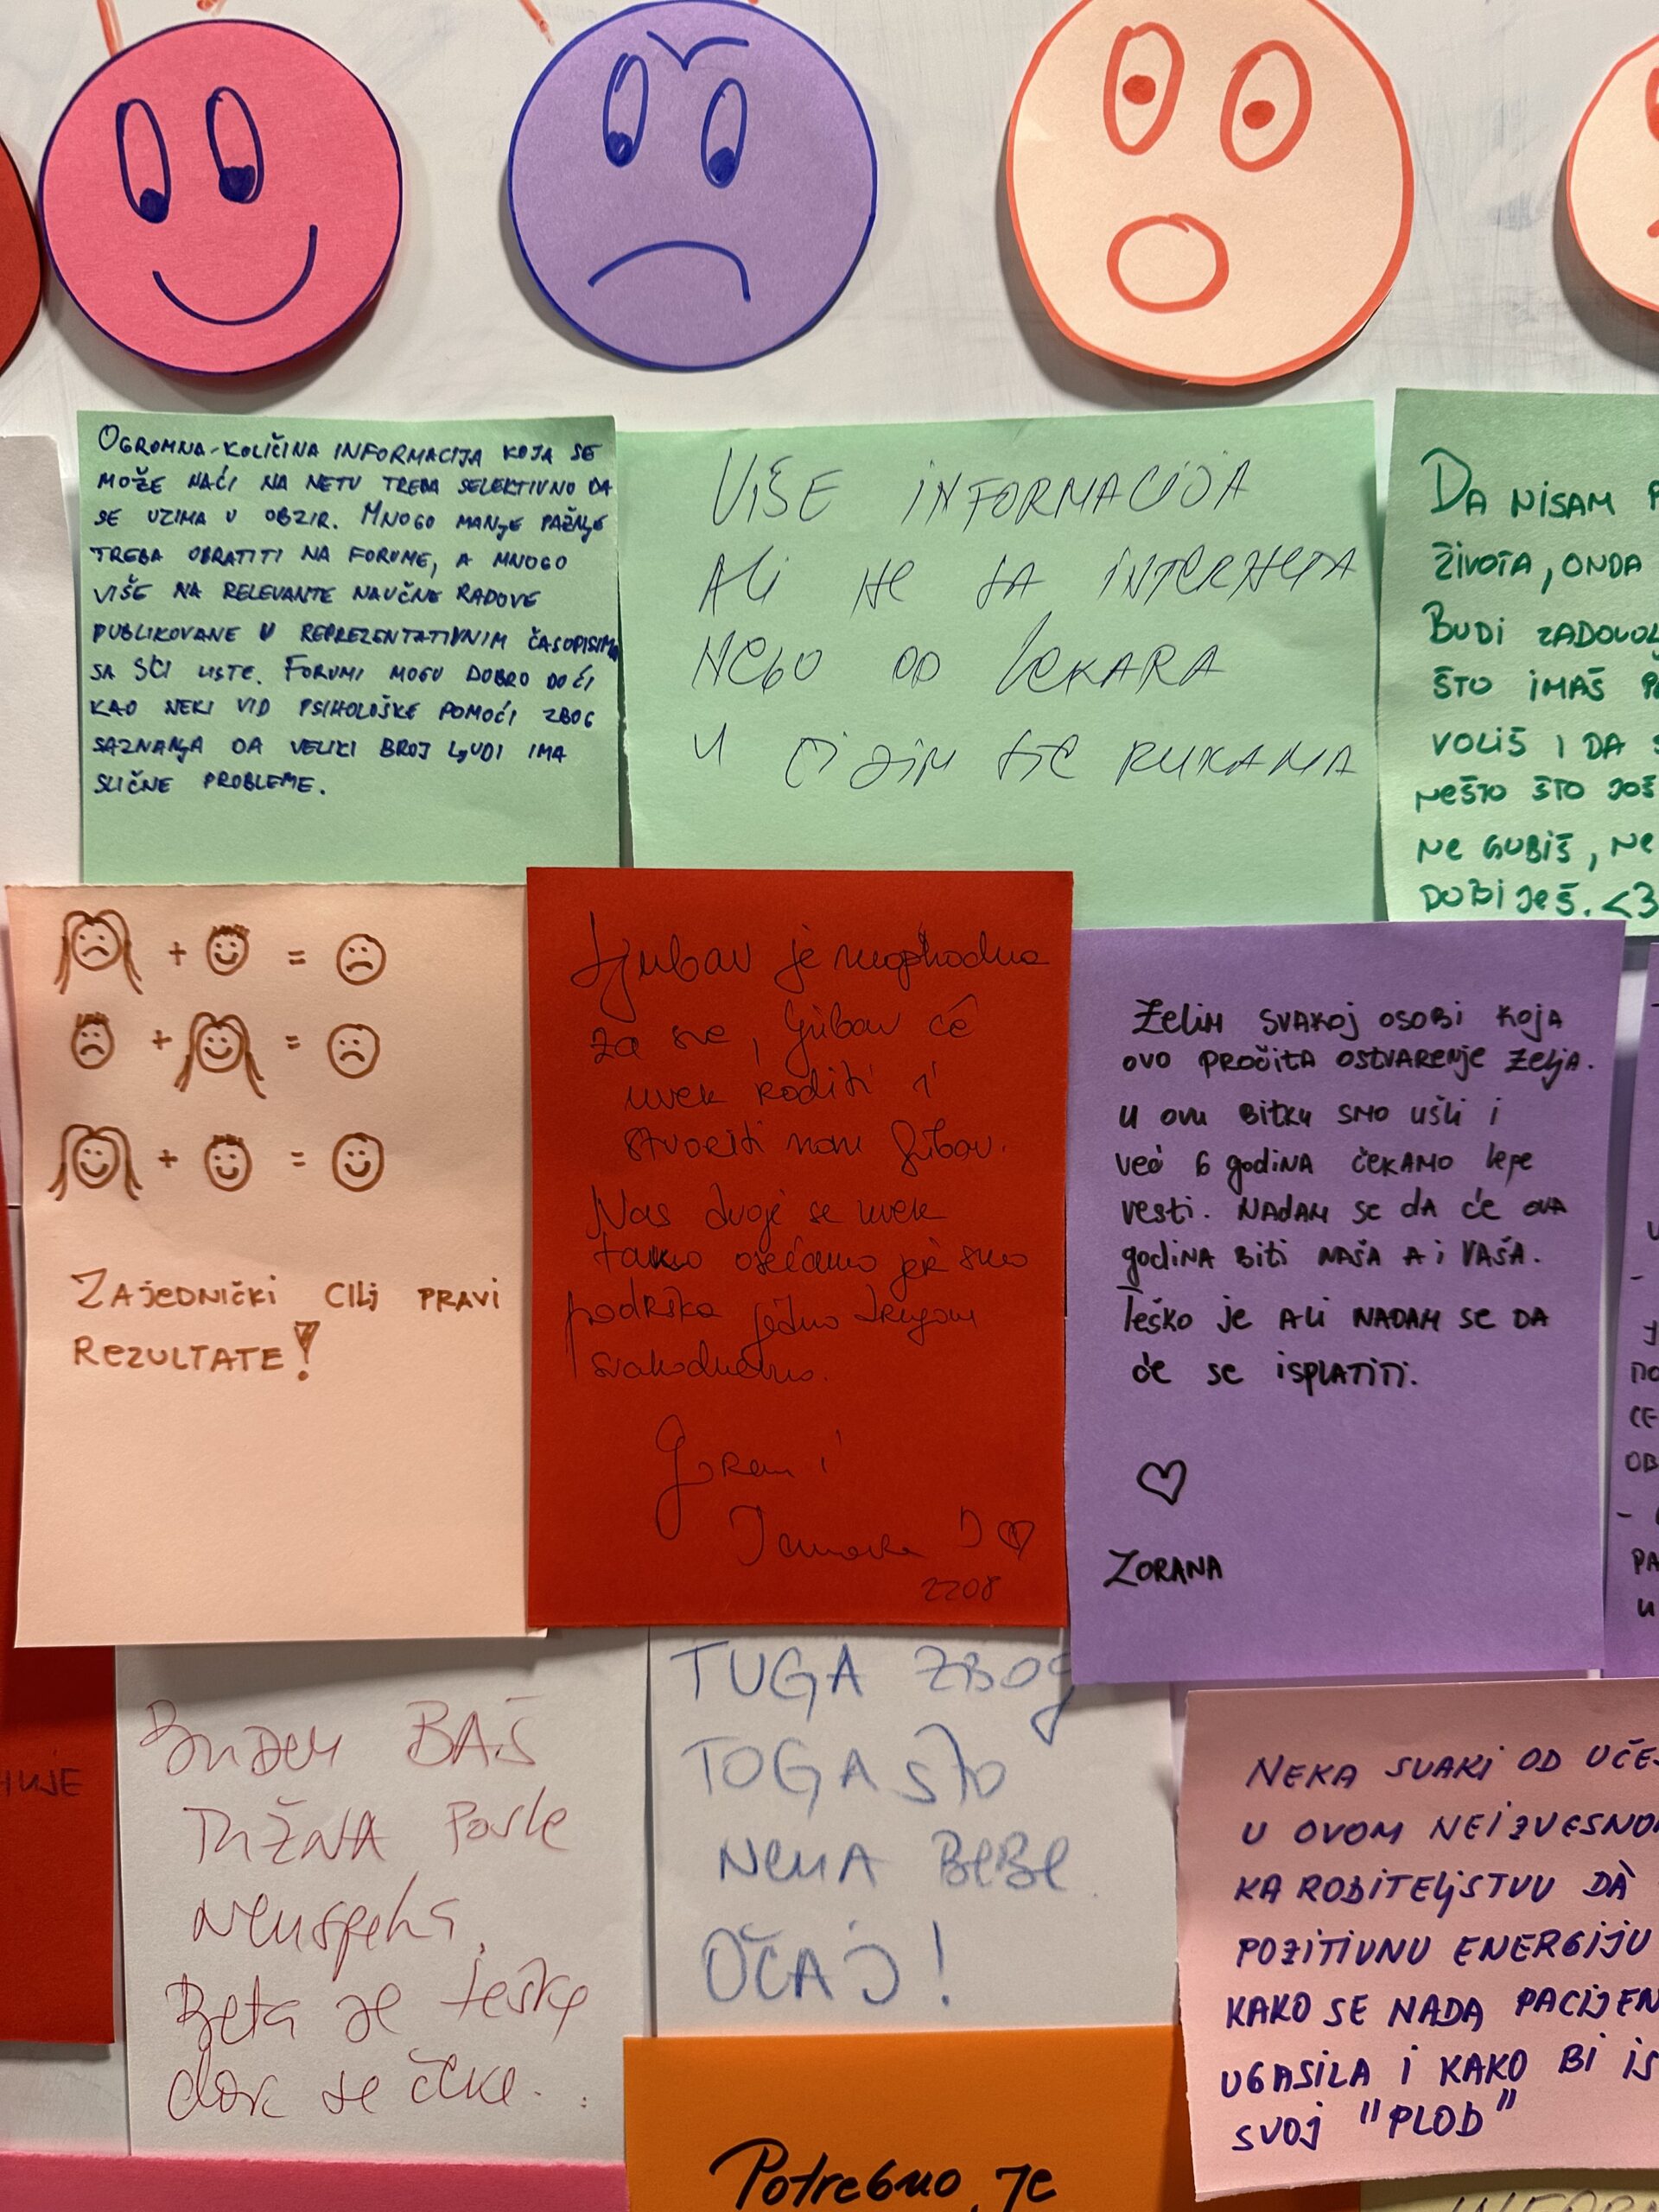 OGROMNA KOLIČINA INFORMACIJA KOJA SE
MOŽE NAĆI NA NETU TREBA SELEKTIVNO DA
SE UZIMA U OBZIR. MNOGO MANJE PAŽNJE
TREBA OBRATITI NA FORUME, A MNOGO
VIŠE NA RELEVANTE NAUČNE RADOVE
PUBLIKOVANE U REPREZENTATIVNIM ČASOPISIMA
SA SCI LISTE. FORUMI MOGU DOBRO DOĆI
KAO NEKI VID PSIHOLOŠKE POMOĆI ZBOG
SAZNANJA DA VELIKI BROJ LJUDI IMA
SLIČNE PROBLEME.
VIŠE INFORMACIJA
ALI NE SA INTERNETA
NEGO OD LEKARA
U ČIJIM STE RUKAMA
DA NISAM
ŽIVOTA, ONDA
BUDI
ŠTO IMAŠ
VOLIŠ I DA
NEŠTO ŠTO JOŠ
NE GUBIŠ, NE
DOBIJEŠ. <3
+ =
+ =
+ =
ZAJEDNIČKI CILJ PRAVI
REZULTATE!
Ljubav je neophodna
za sve, ljubav će
uvek roditi i
stvoriti novu ljubav.
Nas dvoje se uvek
tako osećamo jer smo
podrška jedno drugom
svakodnevno.
Goran i
2208
ŽELIM SVAKOJ OSOBI KOJA
OVO PROČITA OSTVARENJE ŽELJA.
U OVU BITKU SMO UŠLI I
VEĆ 6 GODINA ČEKAMO LEPE
VESTI. NADAM SE DA ĆE OVA
GODINA BITI NAŠA A I VAŠA.
TEŠKO JE ALI NADAM SE DA
ĆE SE ISPLATITI.
ZORANA
BUDEM BAŠ
TUŽNA POSLE
NEUSPEHA.
Beta je teška
dok se čeka.
TUGA ZBOG
TOGA ŠTO
NEMA BEBE.
OČAJ!
NEKA SVAKI OD
U OVOM
KA RODITELJSTVU DA
POZITIVNU ENERGIJU
KAKO SE NADA
UGASILA I KAKO BI
SVOJ "PLOD"
Potrebno je